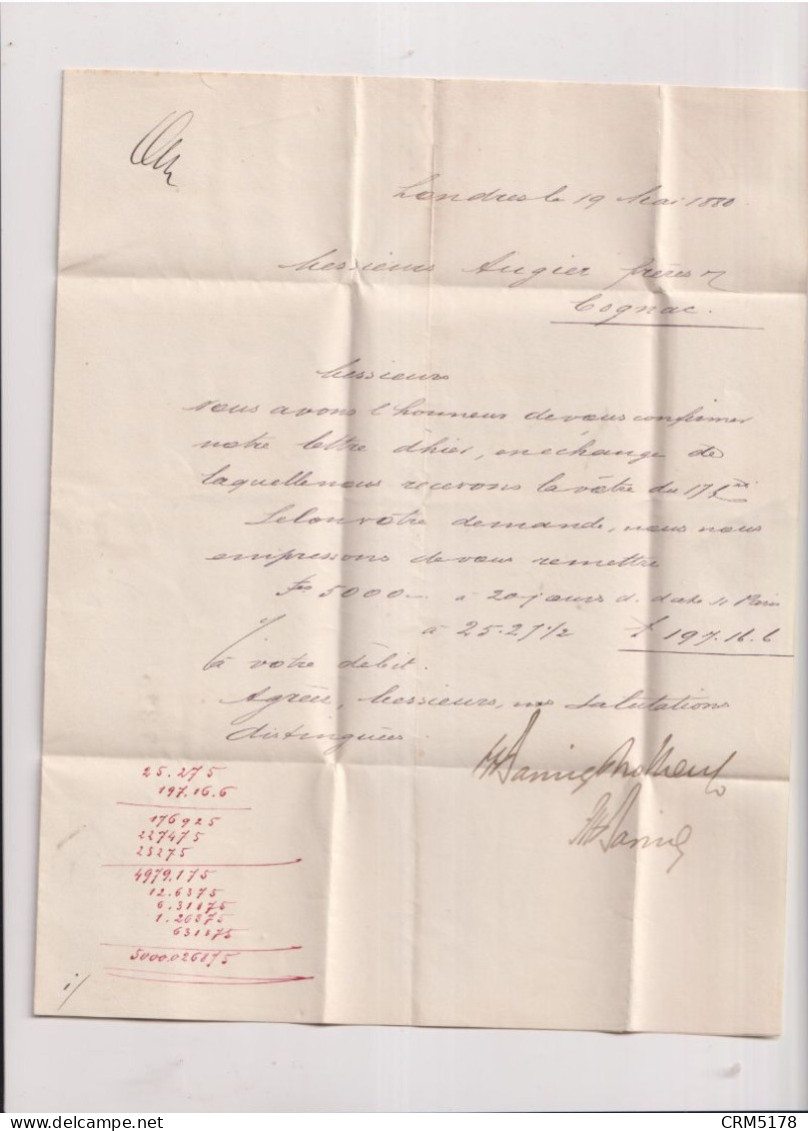 Londres le 19 Mai 1880.
Messieurs Augier frères
Cognac.
Messieurs
Nous avons l'honneur de vous confirmer
notre lettre d'hier, en échange de
laquelle nous recevons la vôtre du 17 Ct
Selon vôtre demande, nous nous
empressons de vous remettre
Fcs 5000 — à 20 jours d. date s/ Paris
à 25.27 1/2 £ 197.16.6
à votre débit.
Agréez, Messieurs, nos salutations
distinguées
25.275
197.16.6
176925
227475
25275
4979.175
12.6375
6.31875
1.26375
631875
5000.026875
CRM5178